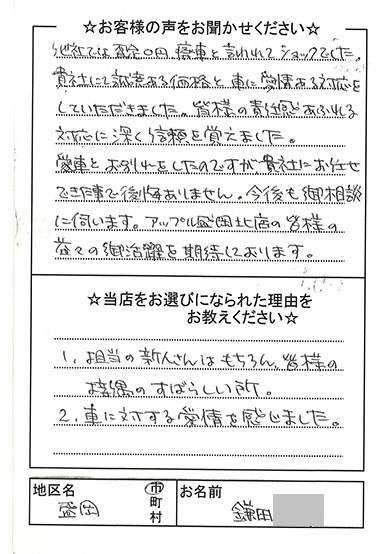 ☆お客様の声をお聞かせください☆
他社では査定0円、廃車と言われてショックでした。
貴社にて誠意ある価格と車に愛情ある対応を
していただきました。皆様の責任感あふれる
対応に深く信頼を覚えました。
愛車とお別れをしたのですが、貴社にお任せ
でき事で後悔ありません。今後も御相談
に伺います。アップル盛岡北店の皆様の
益々の御活躍を期待しております。
☆当店をお選びになられた理由を
お教えください☆
1、担当の新人さんはもちろん、皆様の
接遇のすばらしい所。
2、車に対する愛情を感じました。
地区名
盛岡
市
町
村
お名前
鎌田